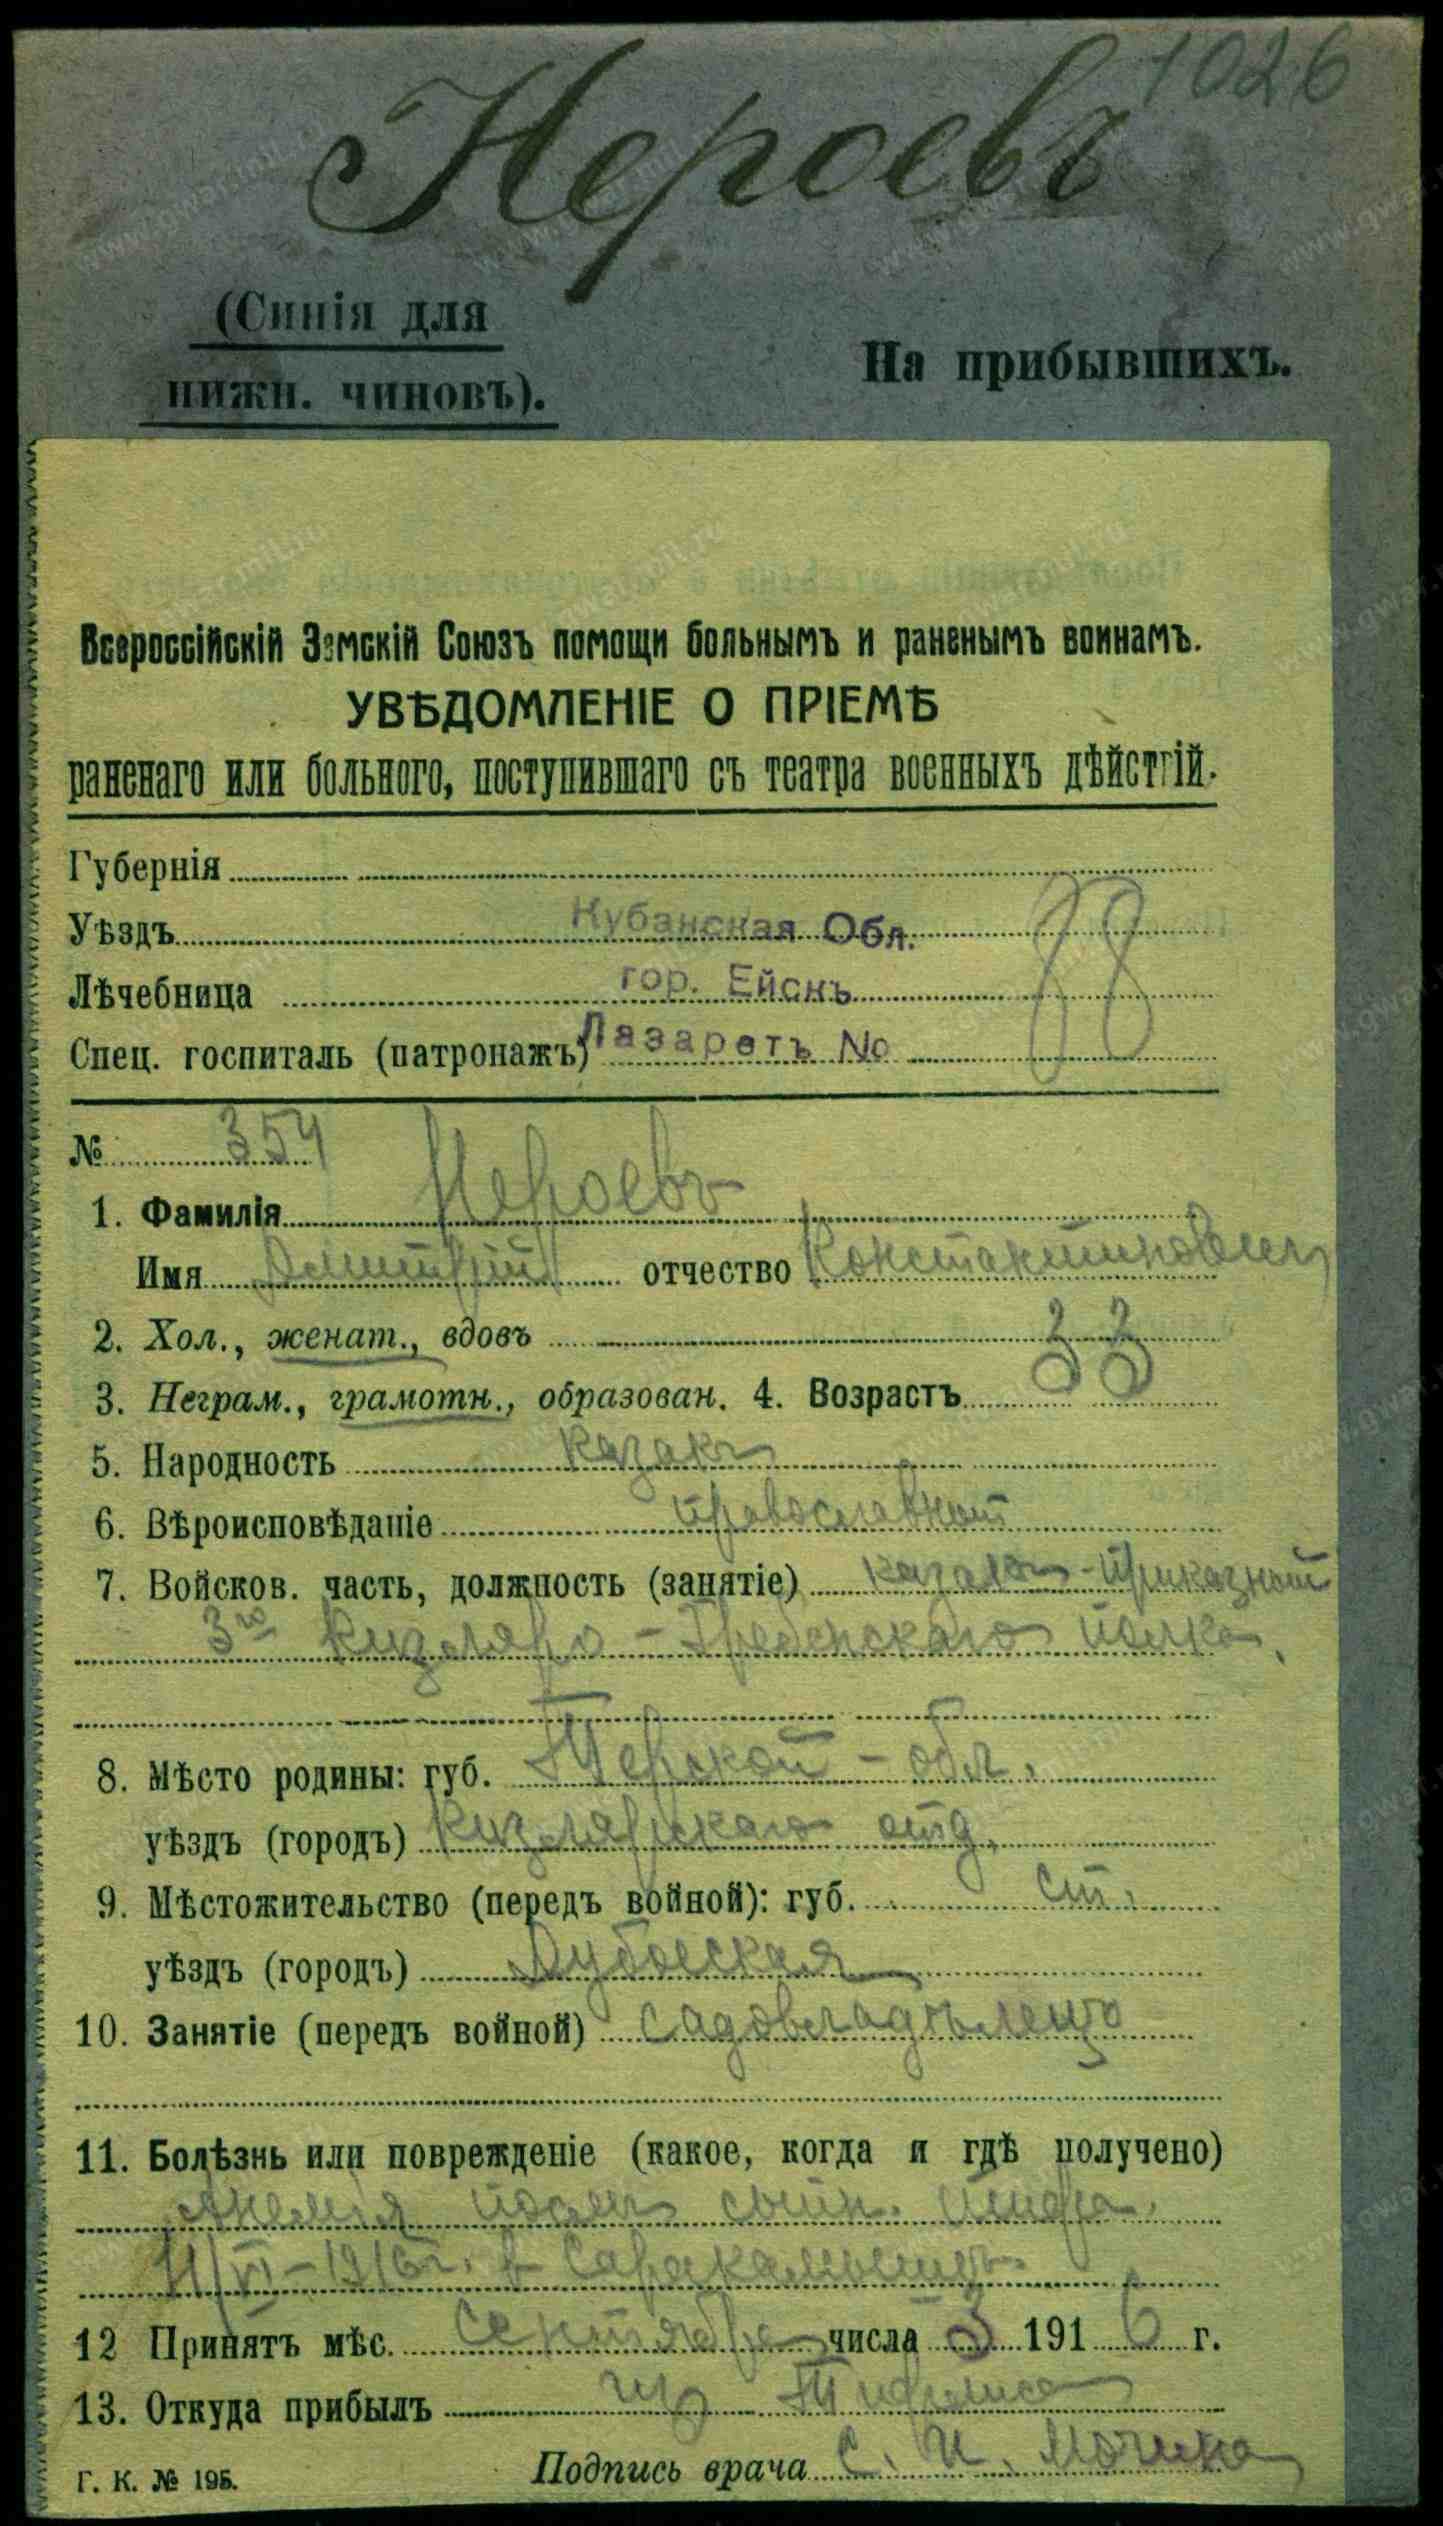 1026
Нероевъ
(Синія для
нижн. чиновъ).
На прибывшихъ.
Всероссійскій Земскій Союзъ помощи больнымъ и раненымъ воинамъ.
УВѢДОМЛЕНІЕ О ПРІЕМѢ
раненаго или больного, поступившаго съ театра военныхъ дѣйствій.
Губернія
Уѣздъ Кубанская Обл.
Лѣчебница гор. Ейскъ
Спец. госпиталь (патронажъ) Лазаретъ №
№ 354
1. Фамилія Нероевъ
Имя Дмитрій отчество Константиновичъ
2. Хол., женат., вдовъ
3. Неграм., грамотн., образован. 4. Возрастъ 33
5. Народность казакъ
6. Вѣроисповѣданіе православной
7. Войсков. часть, должность (занятіе) казакъ-приказной
3го Кизляро-Гребенскаго полка,
8. Мѣсто родины: губ. Терской-обл.
уѣздъ (городъ) Кизлярскаго отд.
9. Мѣстожительство (передъ войной): губ. ст.
уѣздъ (городъ) Дубовская
10. Занятіе (передъ войной)
11. Болѣзнь или поврежденіе (какое, когда и гдѣ получено)
Анемія послѣ сыпн. тифа.
11/VI-1916г. в
12 Принятъ мѣс. сентября числа 3 1916 г.
13. Откуда прибылъ из Тифлиса
Подпись врача С. И.
Г. К. № 195.